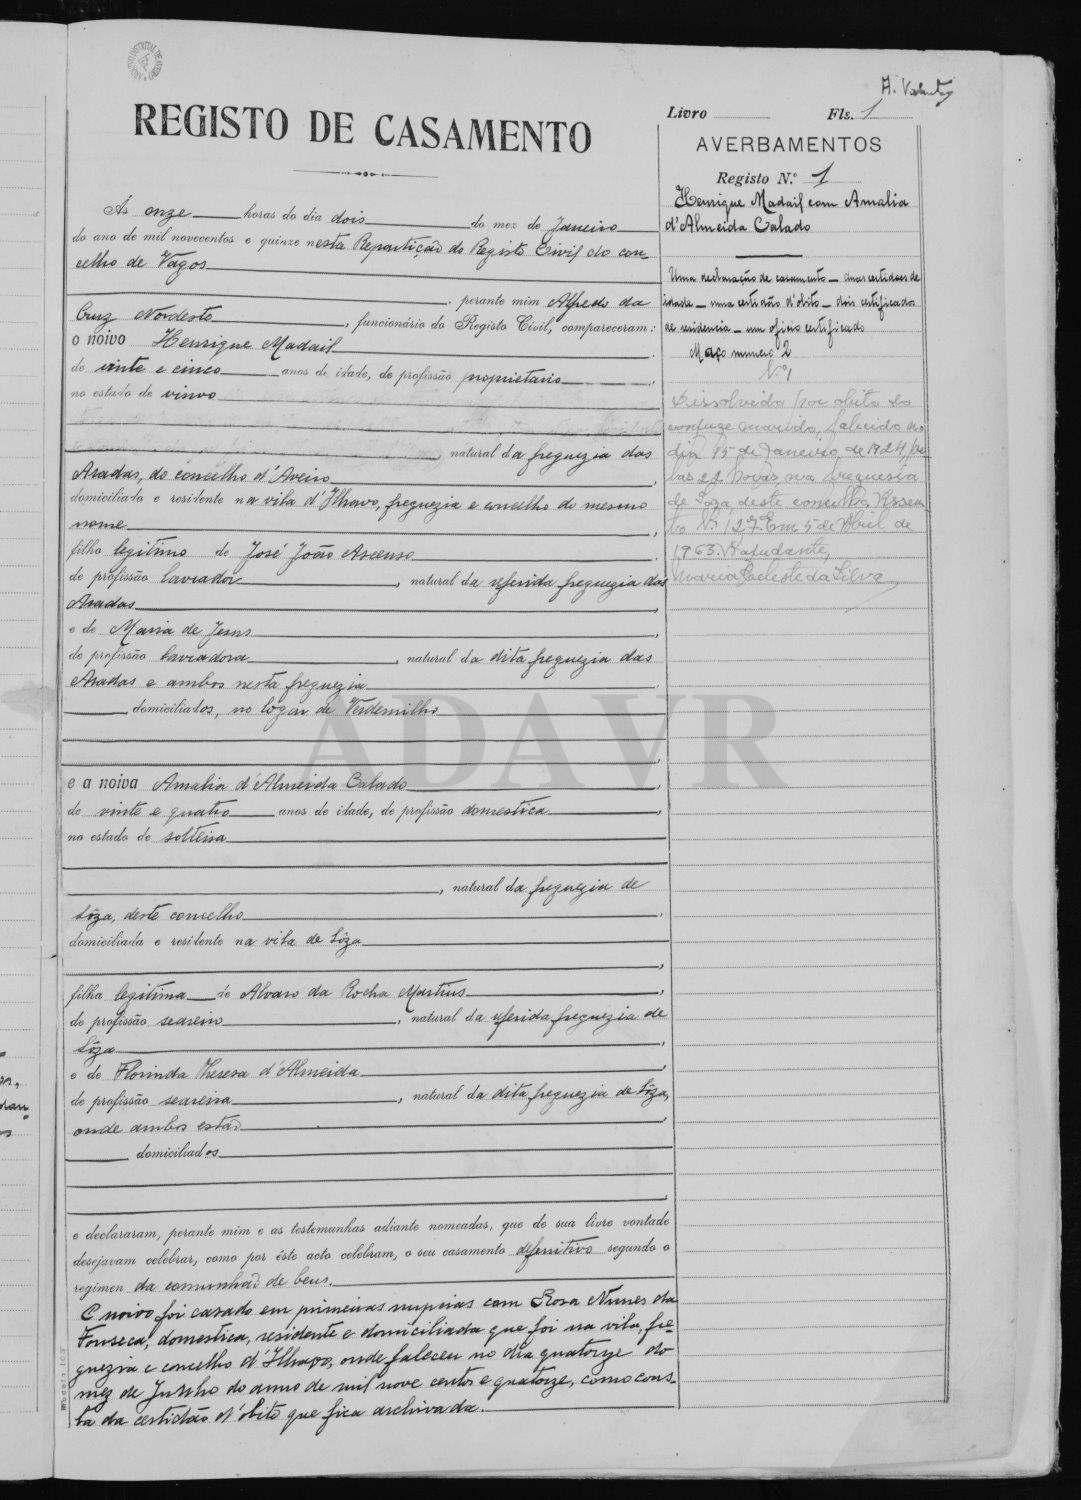 A. Valente
REGISTO DE CASAMENTO
Livro
Fls. 1
AVERBAMENTOS
Registo N.º 1
Henrique Madail com Amalia
d'Almeida Calado
Uma declaração de casamento — duas certidões de
idade — uma certidão d'obito — dois certificados
de residencia — um oficio certificado
Maço numero 2
N.º 1
Dissolvido por obito do
conjuge marido, falecido no
dia 15 de Janeiro de 1924, pe-
las 22 horas, na freguesia
de Soza, deste concelho. Assen-
to N.º 127. Em 5 de Abril de
1963. A ajudante,
Maria Celeste da Silva
Ás onze horas do dia dois do mez de Janeiro
do ano de mil novecentos e quinze nesta Repartição do Registo Civil do con-
celho de Vagos
, perante mim Alfredo da
Cruz Nordeste, funcionário do Registo Civil, compareceram:
o noivo Henrique Madail
de vinte e cinco anos de idade, de profissão proprietario,
no estado de viuvo
, natural da freguezia das
Aradas, do concelho d'Aveiro
domiciliado e residente na vila d'Ilhavo, freguezia e concelho do mesmo
nome,
filho legitimo de José João Ascenso
de profissão lavrador, natural da referida freguezia das
Aradas,
e de Maria de Jesus,
de profissão lavradora, natural da dita freguezia das
Aradas e ambos nesta freguezia
domiciliados, no logar de Verdemilho
e a noiva Amalia d'Almeida Calado,
de vinte e quatro anos de idade, de profissão domestica,
no estado de solteira
, natural da freguezia de
Sôza, deste concelho,
domiciliada e residente na vila de Sôza
,
filha legitima de Alvaro da Rocha Martins,
de profissão seareiro, natural da referida freguezia de
Sôza,
e de Florinda Thereza d'Almeida,
de profissão seareira, natural da dita freguezia de Sôza,
onde ambos estão
domiciliados
e declararam, perante mim e as testemunhas adiante nomeadas, que de sua livre vontade
desejavam celebrar, como por êste acto celebram, o seu casamento definitivo segundo o
regimen da comunhão de bens.
O noivo foi casado em primeiras nupcias com Rosa Nunes da
Fonseca, domestica, residente e domiciliada que foi na vila, fre-
guezia e concelho d'Ilhavo, onde faleceu no dia quatorze do
mez de Junho do anno de mil nove centos e quatorze, como cons-
ta da certidão d'obito que fica archivada.
Modelo 103
ADAVR